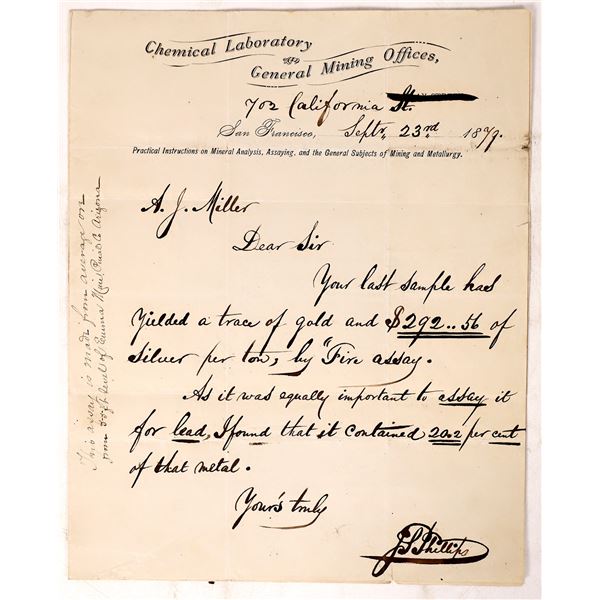 Chemical Laboratory
and
General Mining Offices,
702 California St.
San Francisco, Septr 23rd 1879.
Practical Instructions on Mineral Analysis, Assaying, and the General Subjects of Mining and Metallurgy.
A. J. Miller
Dear Sir
Your last sample has
Yielded a trace of gold and $292..56 of
Silver per ton, by "Fire assay.
As it was equally important to assay it
for lead, I found that it contained 20.2 per cent
of that metal.
Your's truly
J S Phillips
This assay is made from average ore
from 50 ft level of Emma Mine, Co Arizona